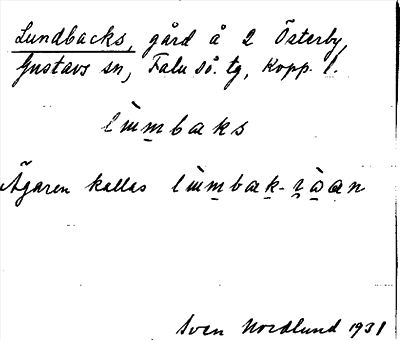 Lundbacks, gård å 2 Österby,
Gustavs sn, Falu sö. tg, Kopp. l.
Ägaren kallas
Sven Nordlund 1931